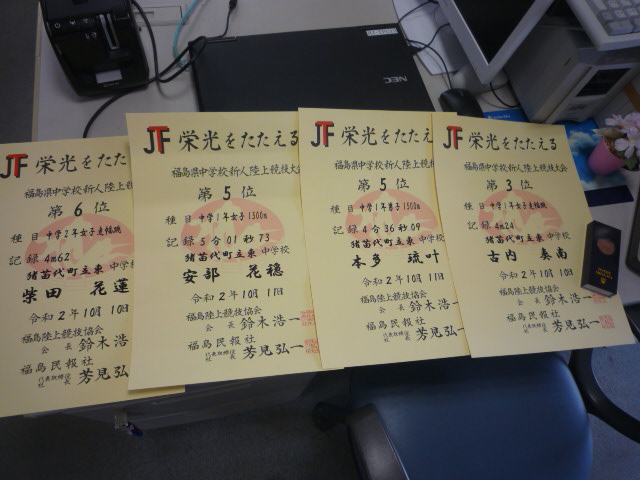 JTF 栄光をたたえる
福島県中学校新人陸上競技大
第6位
種目 中学2年女子走幅跳
記録 4m62
猪苗代町立東 中学校
柴田 花蓮
令和2年10月10日
福島陸上競技協会
会長 鈴木浩一
福島民報社
代表取締役社長 芳見弘一
JTF 栄光をたたえる
福島県中学校新人陸上競技大会
第5位
種目 中学1年女子1500m
記録 5分01秒73
猪苗代町立東 中学校
安部 花穂
令和2年10月11日
福島陸上競技協会
会長 鈴木浩一
福島民報社
代表取締役社長 芳見弘一
JTF 栄光をたたえる
福島県中学校新人陸上競技大
第5位
種目 中学1年男子1500m
記録 4分36秒09
猪苗代町立東 中学校
本多 琉叶
令和2年10月11日
福島陸上競技協会
会長 鈴木浩一
福島民報社
代表取締役社長 芳見弘一
JTF 栄光をたたえる
福島県中学校新人陸上競技大会
第3位
記録 4m24
猪苗代町立東 中学校
古内 奏南
令和2年10月11日
福島陸上競技協会
会長 鈴木浩一
福島民報社
代表取締役社長 芳見弘一
NEC